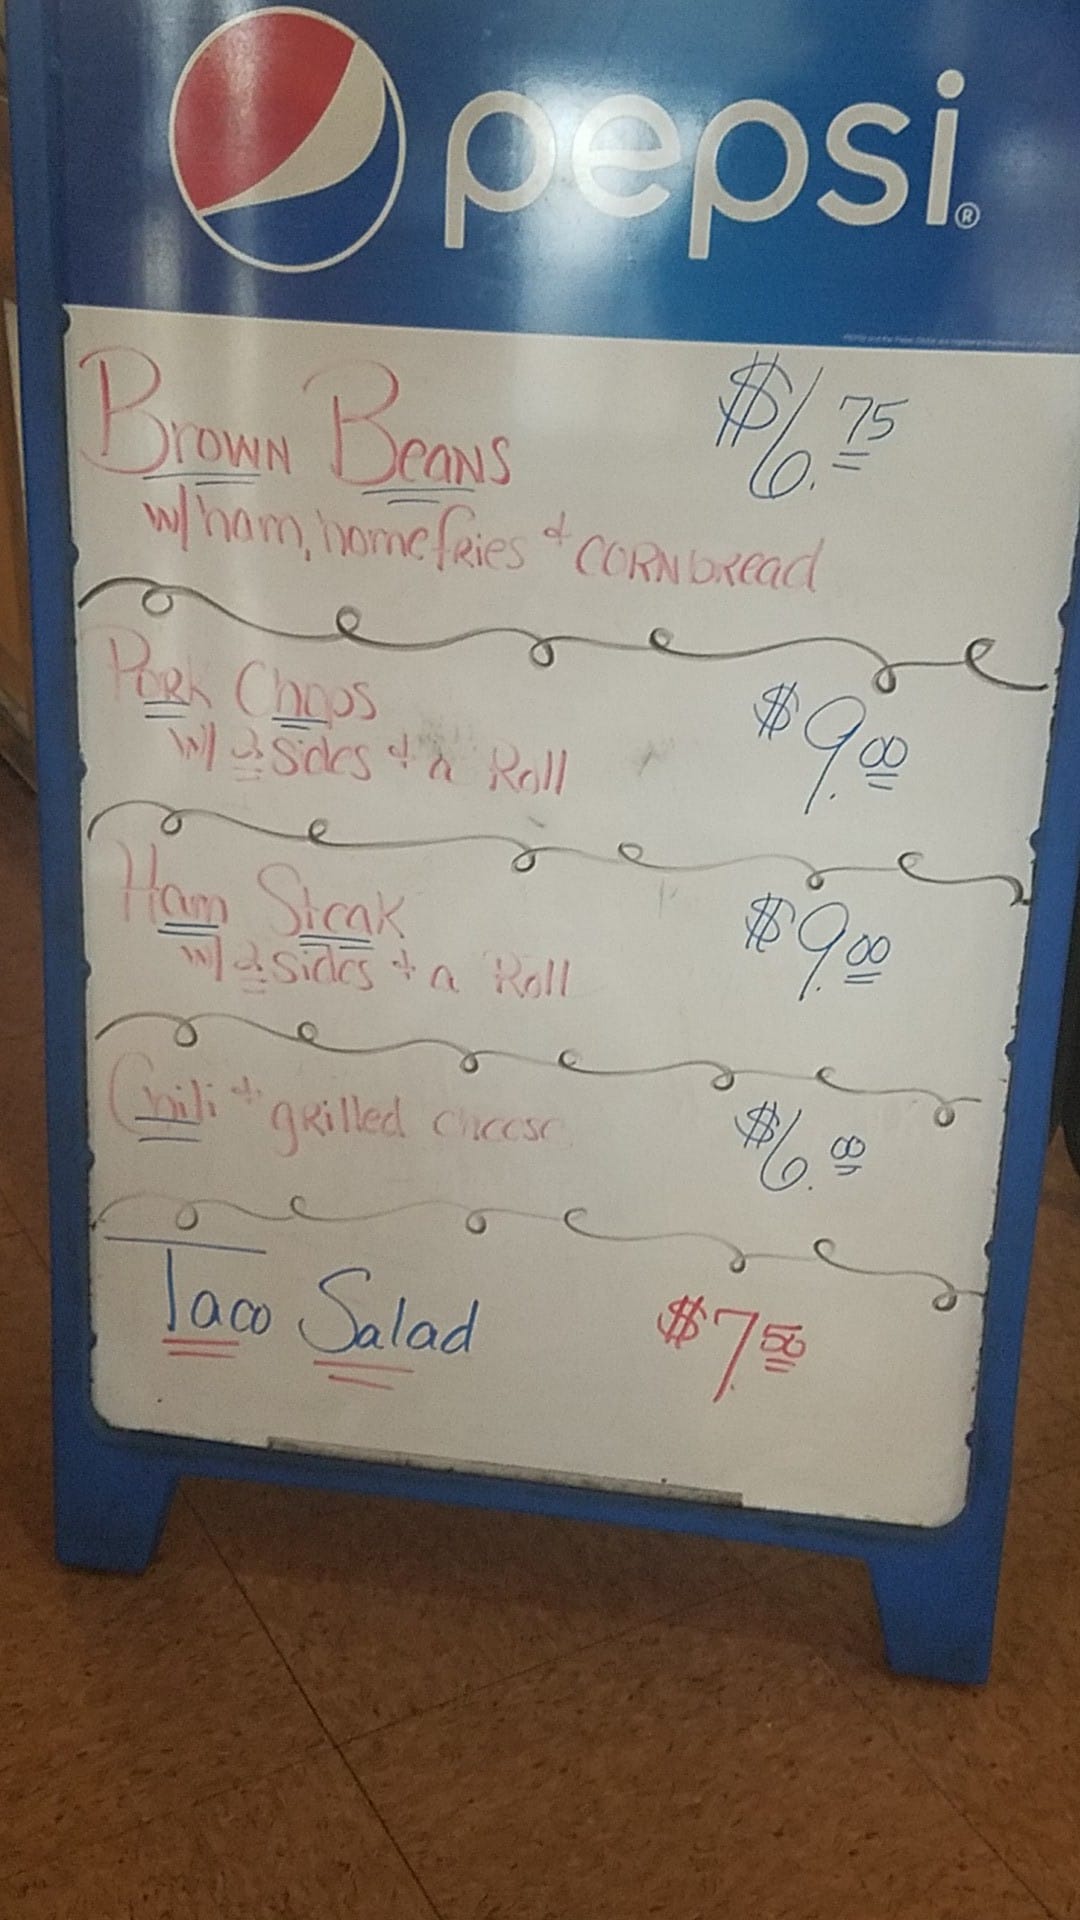 pepsi®
Brown Beans $6.75
w/ham, homefries & cornbread
Pork Chops $9.00
w/ 2 sides & a Roll
Ham Steak $9.00
w/ 2 sides & a Roll
Chili & grilled cheese $6.00
Taco Salad $7.50